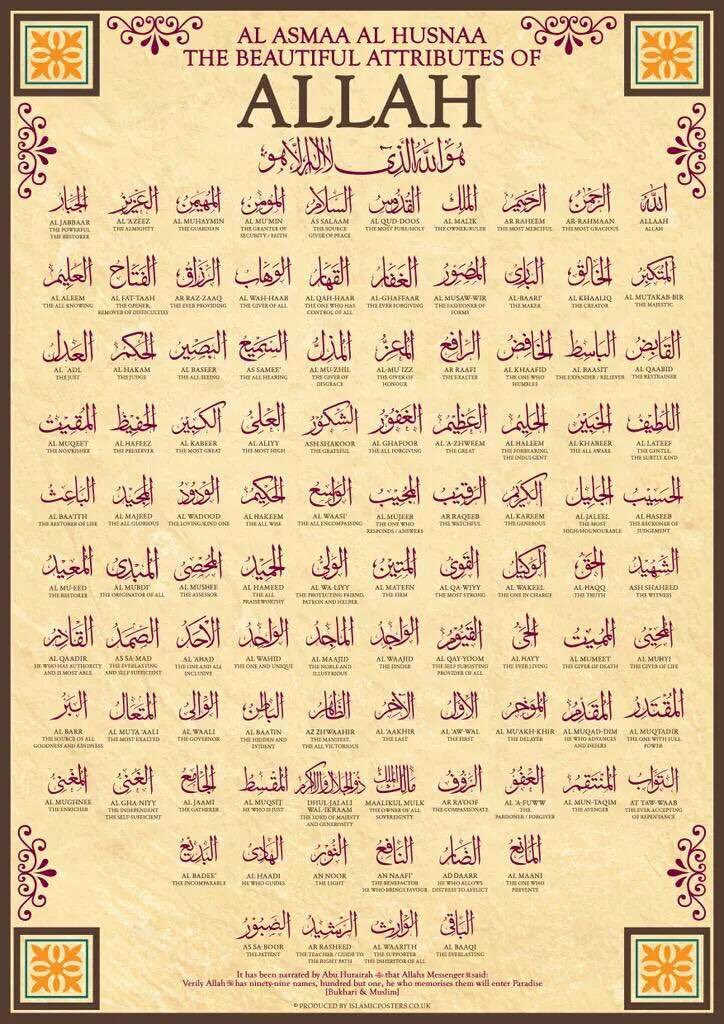 AL ASMAA AL HUSNAA
THE BEAUTIFUL ATTRIBUTES OF
ALLAH
هو الله الذي لا إله إلا هو
الله
ALLAAH
ALLAH
الرحمن
AR-RAHMAAN
THE MOST GRACIOUS
الرحيم
AR RAHEEM
THE MOST MERCIFUL
الملك
AL MALIK
THE OWNER/RULER
القدوس
AL QUD-DOOS
THE MOST PURE/HOLY
السلام
AS SALAAM
THE SOURCE
GIVER OF PEACE
المؤمن
AL MU'MIN
THE GRANTER OF
SECURITY / FAITH
المهيمن
AL MUHAYMIN
THE GUARDIAN
العزيز
AL 'AZEEZ
THE ALMIGHTY
الجبار
AL JABBAAR
THE POWERFUL
THE RESTORER
المتكبر
AL MUTAKAB-BIR
THE MAJESTIC
الخالق
AL KHAALIQ
THE CREATOR
البارئ
AL-BAARI'
THE MAKER
المصور
AL MUSAW-WIR
THE FASHIONER OF
FORMS
الغفار
AL-GHAFFAAR
THE EVER FORGIVING
القهار
AL QAH-HAAR
THE ONE WHO HAS
CONTROL OF ALL
الوهاب
AL WAH-HAAB
THE GIVER OF ALL
الرزاق
AR RAZ-ZAAQ
THE EVER PROVIDING
الفتاح
AL FAT-TAAH
THE OPENER,
REMOVER OF DIFFICULTIES
العليم
AL ALEEM
THE ALL KNOWING
القابض
AL QAABID
THE RESTRAINER
الباسط
AL BAASIT
THE EXPANDER / RELIEVER
الخافض
AL KHAAFID
THE ONE WHO
HUMBLES
الرافع
AR RAAFI
THE 'EXALTER
المعز
AL-MU`IZZ
THE GIVER OF
HONOUR
المذل
AL MU-ZHIL
THE GIVER OF
DISGRACE
السميع
AS SAMEE'
THE ALL HEARING
البصير
AL BASEER
THE ALL SEEING
الحكم
AL HAKAM
THE JUDGE
العدل
AL `ADL
THE JUST
اللطيف
AL LATEEF
THE GENTLE,
THE SUBTLY KIND
الخبير
AL KHABEER
THE ALL AWARE
الحليم
AL HALEEM
THE FORBEARING,
THE INDULGENT
العظيم
AL 'A-ZHWEEM
THE GREAT
الغفور
AL GHAFOOR
THE ALL FORGIVING
الشكور
ASH SHAKOOR
THE GRATEFUL
العلي
AL ALIYY
THE MOST HIGH
الكبير
AL KABEER
THE MOST GREAT
الحفيظ
AL HAFEEZ
THE PRESERVER
المقيت
AL MUQEET
THE NOURISHER
الحسيب
AL HASEEB
THE RECKONER OF
JUDGEMENT
الجليل
AL JALEEL
THE MOST
HIGH/HOUNOURABLE
الكريم
AL KAREEM
THE GENEROUS
الرقيب
AR RAQEEB
THE WATCHFUL
المجيب
AL MUJEEB
THE ONE WHO
RESPONDS / ANSWERS
الواسع
AL WAASI'
THE ALL ENCOMPASSING
الحكيم
AL HAKEEM
THE ALL WISE
الودود
AL WADOOD
THE LOVING/KIND ONE
المجيد
AL MAJEED
THE ALL GLORIOUS
الباعث
AL BAA'ITH
THE RESTORER OF LIFE
الشهيد
ASH SHAHEED
THE WITNESS
الحق
AL-HAQQ
THE TRUTH
الوكيل
AL WAKEEL
THE ONE IN CHARGE
القوي
AL QA-WIYY
THE MOST STRONG
المتين
AL MATEEN
THE FIRM
الولي
AL WA-LIYY
THE PROTECTING FRIEND,
PATRON AND HELPER
الحميد
AL HAMEED
THE ALL
PRAISEWORTHY
المحصي
AL MUHSEE
THE ASSESSOR
المبدئ
AL MUBDI'
THE ORIGINATOR OF ALL
المعيد
AL MU-EED
THE RESTORER
المحيي
AL MUHYI
THE GIVER OF LIFE
المميت
AL MUMEET
THE GIVER OF DEATH
الحي
AL HAYY
THE EVER LIVING
القيوم
AL QAY-YOOM
THE SELF SUBSISTING
PROVIDER OF ALL
الواجد
AL WAAJID
THE FINDER
الماجد
AL MAAJID
THE NOBLE AND
ILLUSTRIOUS
الواحد
AL WAHID
THE ONE AND UNIQUE
الاحد
AL 'AHAD
THE ONE AND ALL
INCLUSIVE
الصمد
AS SA-MAD
THE EVERLASTING
AND SELF SUFFICIENT
القادر
AL QAADIR
HE WHO HAS AUTHORITY
AND IS MOST ABLE
المقتدر
AL MUQTADIR
THE ONE WITH FULL
POWER
المقدم
AL MUQAD-DIM
HE WHO ADVANCES
AND DEFERS
المؤخر
AL MU'AKH-KHIR
THE DELAYER
الأول
AL 'AW-WAL
THE FIRST
الآخر
AL 'AAKHIR
THE LAST
الظاهر
AZ ZHWAAHIR
THE MANIFEST,
THE ALL VICTORIOUS
الباطن
AL BAATIN
THE HIDDEN AND
EVIDENT
الوالي
AL WAALI
THE GOVERNOR
المتعال
AL MUTA`AALI
THE MOST EXALTED
البر
AL BARR
THE SOURCE OF ALL
GOODNESS AND KINDNESS
التواب
AT TAW-WAAB
THE EVER ACCEPTING
OF REPENTANCE
المنتقم
AL MUN-TAQIM
THE AVENGER
العفو
AL 'A-FUWW
THE
PARDONER / FORGIVER
الرؤوف
AR RA'OOF
THE COMPASSIONATE
مالك الملك
MAALIKUL MULK
THE OWNER OF ALL
SOVEREIGNTY
ذو الجلال والإكرام
DHUL JALALI
WAL-IKRAAM
THE LORD OF MAJESTY
AND GENEROSITY
المقسط
AL MUQSIT
HE WHO IS JUST
الجامع
AL JAAMI
THE GATHERER
الغني
AL GHA-NIYY
THE INDEPENDENT
THE SELF-SUFFICIENT
المغني
AL MUGHNEE
THE ENRICHER
المانع
AL MAANI
THE ONE WHO
PREVENTS
الضار
AD DAARR
HE WHO ALLOWS
DISTRESS TO AFFLICT
النافع
AN NAAFI'
THE BENEFACTOR
HE WHO BRINGS FAVOUR
النور
AN NOOR
THE LIGHT
الهادي
AL HAADI
HE WHO GUIDES
البديع
AL BADEE'
THE INCOMPARABLE
الباقي
AL BAAQI
THE EVERLASTING
الوارث
AL WAARITH
THE SUPPORTER
THE INHERITOR OF ALL
الرشيد
AR RASHEED
THE TEACHER / GUIDE TO
THE RIGHT PATH
الصبور
AS SA-BOOR
THE PATIENT
It has been narrated by Abu Hurairah that Allahs Messenger ﷺ said:
Verily Allah has ninety-nine names, hundred but one, he who memorises them will enter Paradise
[Bukhari & Muslim]
© PRODUCED BY ISLAMICPOSTERS.CO.UK